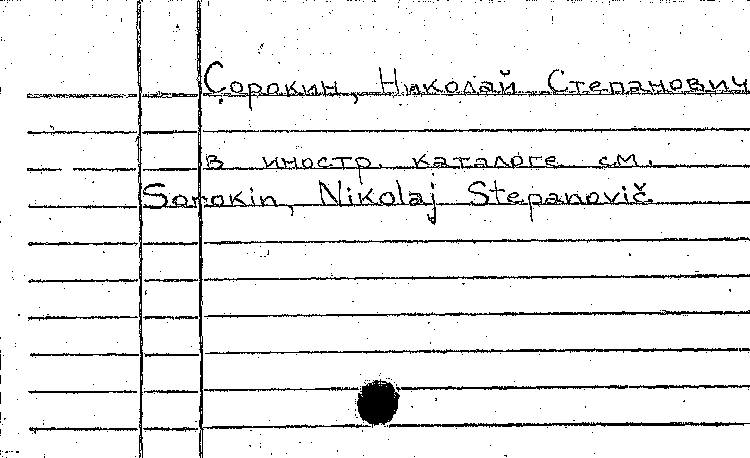 Сорокин, Николай Степанович
в иностр. каталоге см.
Sorokin, Nikolaj Stepanovič